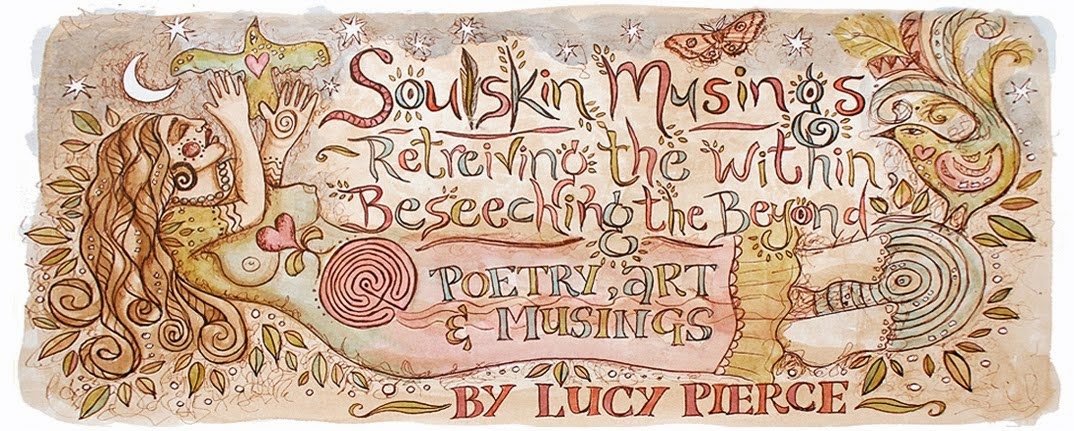 Soulskin Musings
Retreiving the within
Beseeching the Beyond
POETRY, ART
& MUSINGS
BY LUCY PIERCE